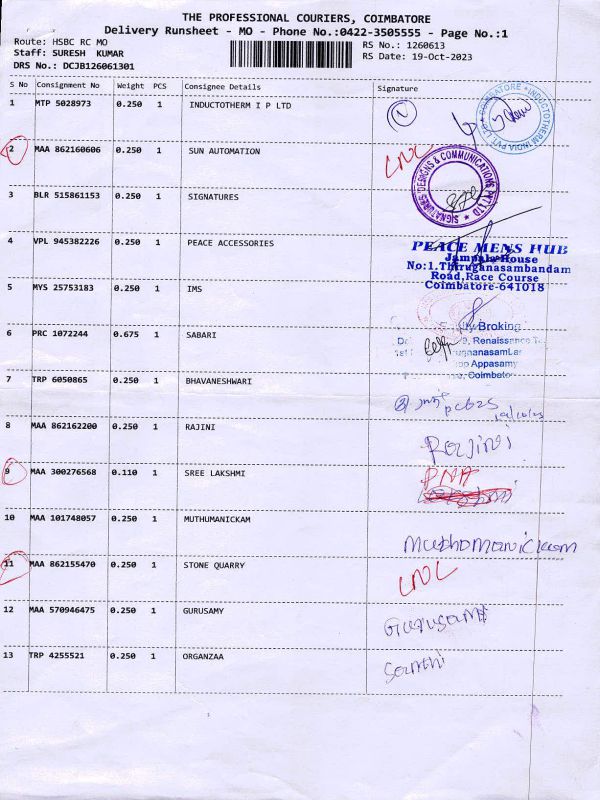 THE PROFESSIONAL COURIERS, COIMBATORE
Delivery Runsheet - MO - Phone No.:0422-3505555 - Page No.:1
Route: HSBC RC MO
RS No.: 1260613
Staff: SURESH KUMAR
RS Date: 19-Oct-2023
DRS No.: DCJB126061301
S No Consignment No Weight PCS Consignee Details Signature
1 MTP 5028973 0.250 1 INDUCTOTHERM I P LTD
COIMBATORE * INDUCTOTHERM INDIA PVT. LTD *
2 MAA 862160606 0.250 1 SUN AUTOMATION LNC
3 BLR 515861153 0.250 1 SIGNATURES
SIGNATURES DESIGNS & COMMUNICATIONS PVT LTD
4 VPL 945382226 0.250 1 PEACE ACCESSORIES
PEACE MENS HUB
Jampala House
No:1,Thiruganasambandam
Road,Race Course
Coimbatore-641018
5 MYS 25753183 0.250 1 IMS
6 PRC 1072244 0.675 1 SABARI
Broking
9, Renaissance
Appasamy
Coimbato
7 TRP 6050865 0.250 1 BHAVANESHWARI
8 MAA 862162200 0.250 1 RAJINI Rajini
9 MAA 300276568 0.110 1 SREE LAKSHMI PNA
10 MAA 101748057 0.250 1 MUTHUMANICKAM Muthomanickam
11 MAA 862155470 0.250 1 STONE QUARRY LNC
12 MAA 570946475 0.250 1 GURUSAMY Gurusami
13 TRP 4255521 0.250 1 ORGANZAA